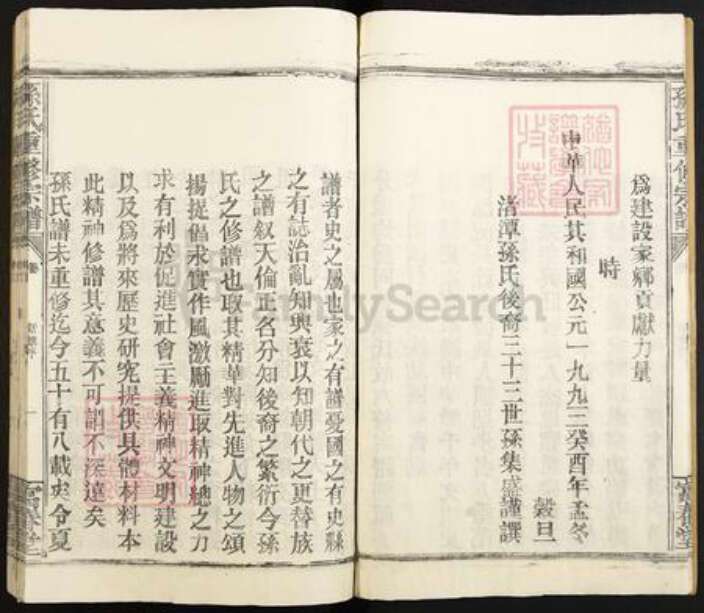 爲建設家鄉貢獻力量
時
中華人民共和國公元一九九三癸酉年孟冬
穀旦
渚潭孫氏後裔三十三世孫集盛謹譔
譜者史之屬也家之有譜憂國之有史縣
之有誌治亂知興衰以知朝代之更替族
之譜叙天倫正名分知後裔之繁衍今孫
氏之修譜也取其精華對先進人物之頌
揚提倡求實作風激勵進取精神總之力
求有利於促進社會主義精神文明建設
以及爲將來歷史研究提供具體材料本
此精神修譜其意義不可謂不深遠矣
孫氏譜未重修迄今五十有八載矣令夏
孫氏重修宗譜
孫氏重修宗譜
富春堂
富春堂
FamilySearch